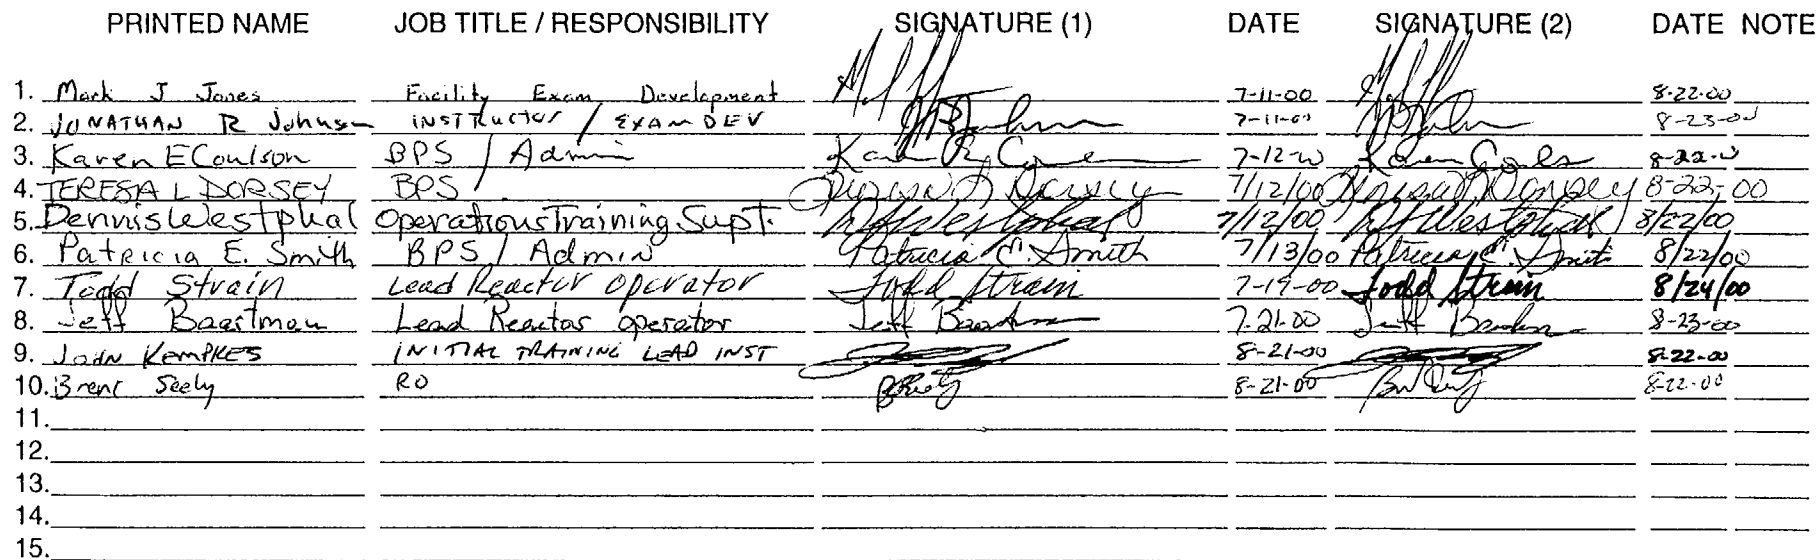 PRINTED NAME JOB TITLE / RESPONSIBILITY SIGNATURE (1) DATE SIGNATURE (2) DATE NOTE
1. Mark J Jones Facility Exam Development 7-11-00 8-22-00
2. JONATHAN R Johnson INSTRUCTOR / EXAM DEV 7-11-00 8-23-00
3. Karen E Coulson BPS / Admin 7-12-00 8-22-00
4. TERESA L DORSEY BPS Teresa L Dorsey 7/12/00 Teresa L Dorsey 8-22-00
5. Dennis Westphal Operations Training Supt. DJWestphal 7/12/00 DJWestphal 8/22/00
6. Patricia E. Smith BPS / Admin Patricia E. Smith 7/13/00 Patricia E. Smith 8/22/00
7. Todd Strain Lead Reactor Operator Todd Strain 7-19-00 Todd Strain 8/24/00
8. Jeff Baartman Lead Reactor operator Jeff 7-21-00 Jeff 8-23-00
9. JOHN KEMPKES INITIAL TRAINING LEAD INST 8-21-00 8-22-00
10. Brent Seely RO 8-21-00 8-22-00
11.
12.
13.
14.
15.